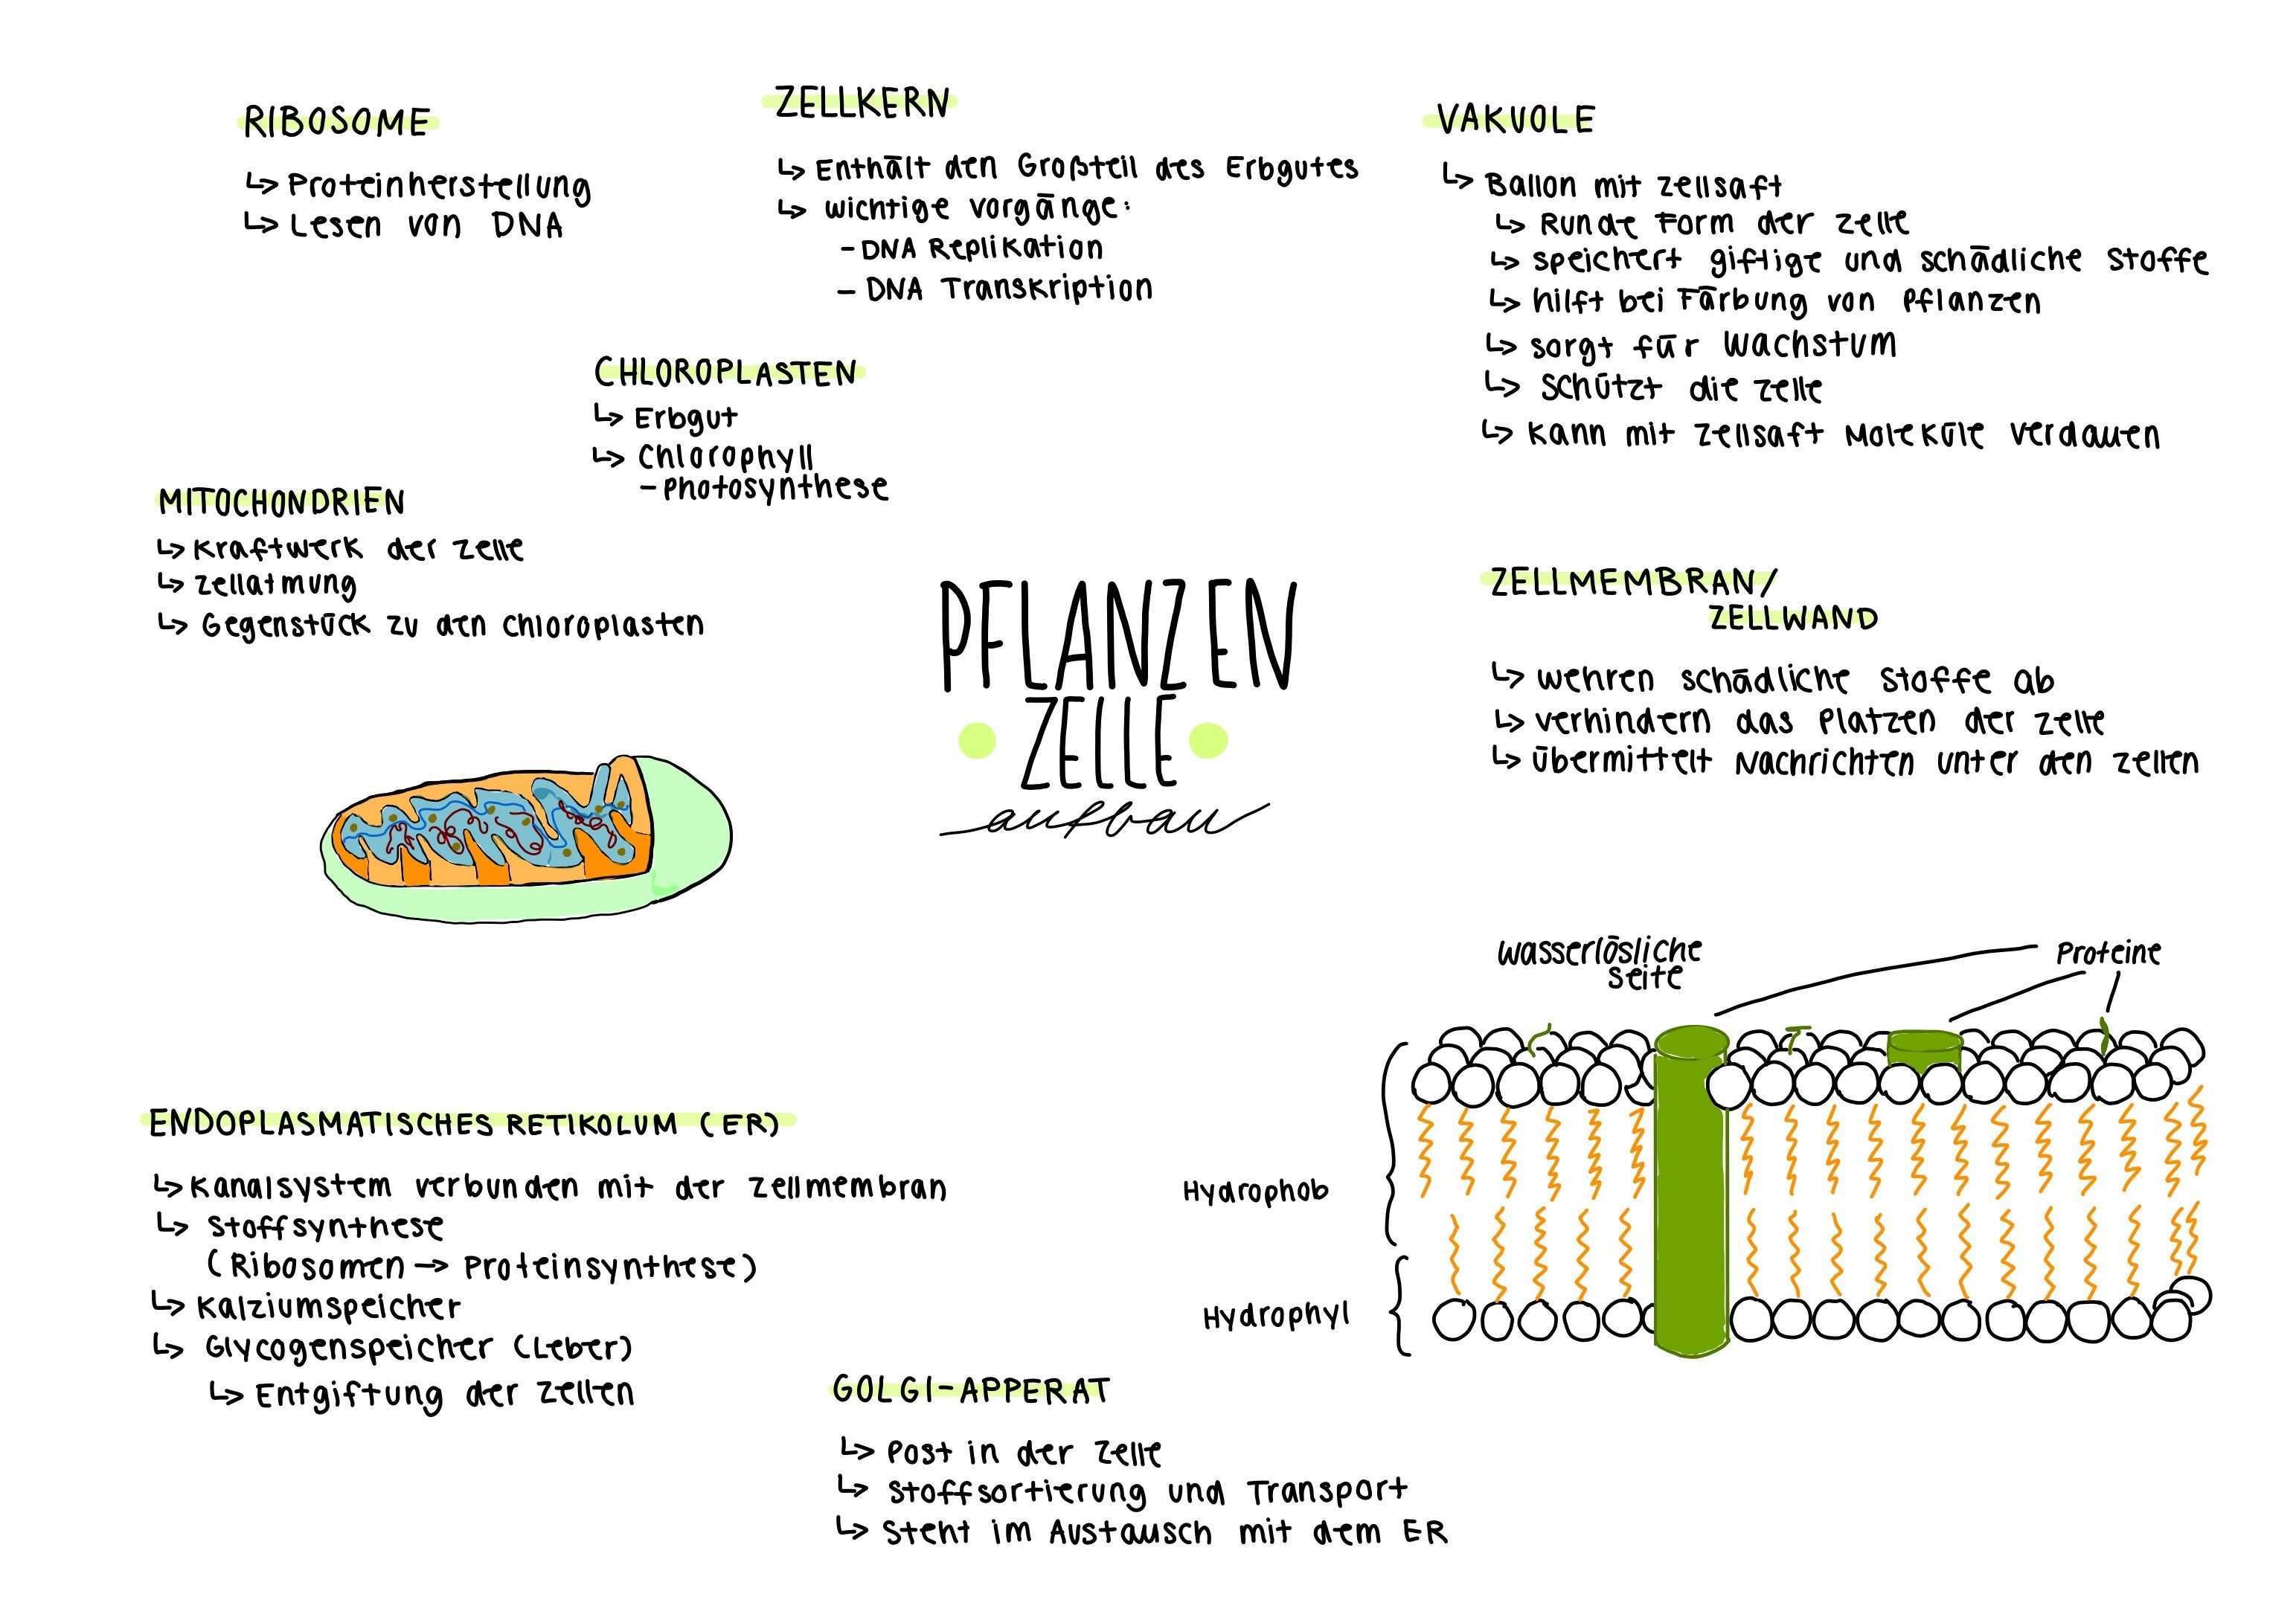 RIBOSOME
↳ Proteinherstellung
↳ Lesen von DNA
ZELLKERN
↳ Enthält den Großteil des Erbgutes
↳ wichtige Vorgänge:
- DNA Replikation
- DNA Transkription
VAKUOLE
↳ Ballon mit Zellsaft
↳ Runde Form der Zelle
↳ speichert giftige und schädliche Stoffe
↳ hilft bei Färbung von Pflanzen
↳ sorgt für Wachstum
↳ schützt die Zelle
↳ kann mit Zellsaft Moleküle verdauen
CHLOROPLASTEN
↳ Erbgut
↳ Chlorophyll
- Photosynthese
MITOCHONDRIEN
↳ Kraftwerk der Zelle
↳ Zellatmung
↳ Gegenstück zu den Chloroplasten
PFLANZEN
ZELLE
aufbau
ZELLMEMBRAN/
ZELLWAND
↳ wehren schädliche Stoffe ab
↳ verhindern das Platzen der Zelle
↳ übermittelt Nachrichten unter den Zellen
wasserlösliche
Seite
Proteine
Hydrophob
Hydrophyl
ENDOPLASMATISCHES RETIKOLUM (ER)
↳ Kanalsystem verbunden mit der Zellmembran
↳ Stoffsynthese
(Ribosomen → Proteinsynthese)
↳ Kalziumspeicher
↳ Glycogenspeicher (Leber)
↳ Entgiftung der Zellen
GOLGI-APPERAT
↳ Post in der Zelle
↳ Stoffsortierung und Transport
↳ Steht im Austausch mit dem ER